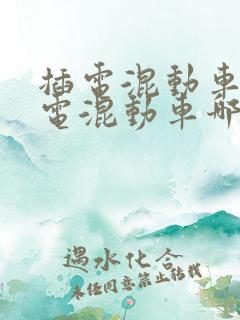 插電混動車
電混動車哪
遇水化合
未經同意禁止轉載